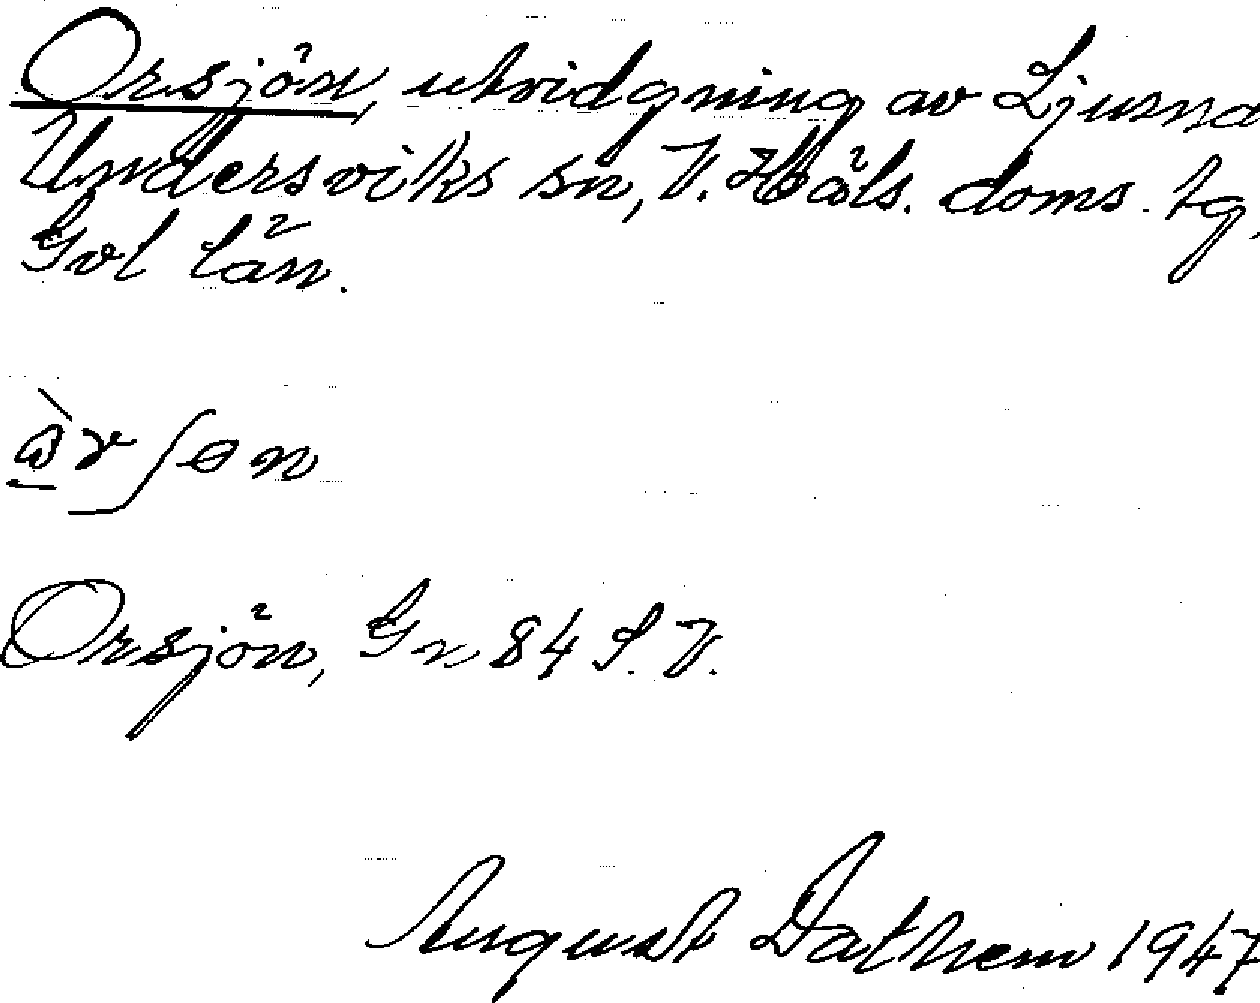 Orsjön, utvidgning av Ljusna
Undersviks sn, V. Häls. doms. tg,
Gvl län.
Orsjön, Gn 84 S.V.
August Dathem 1947